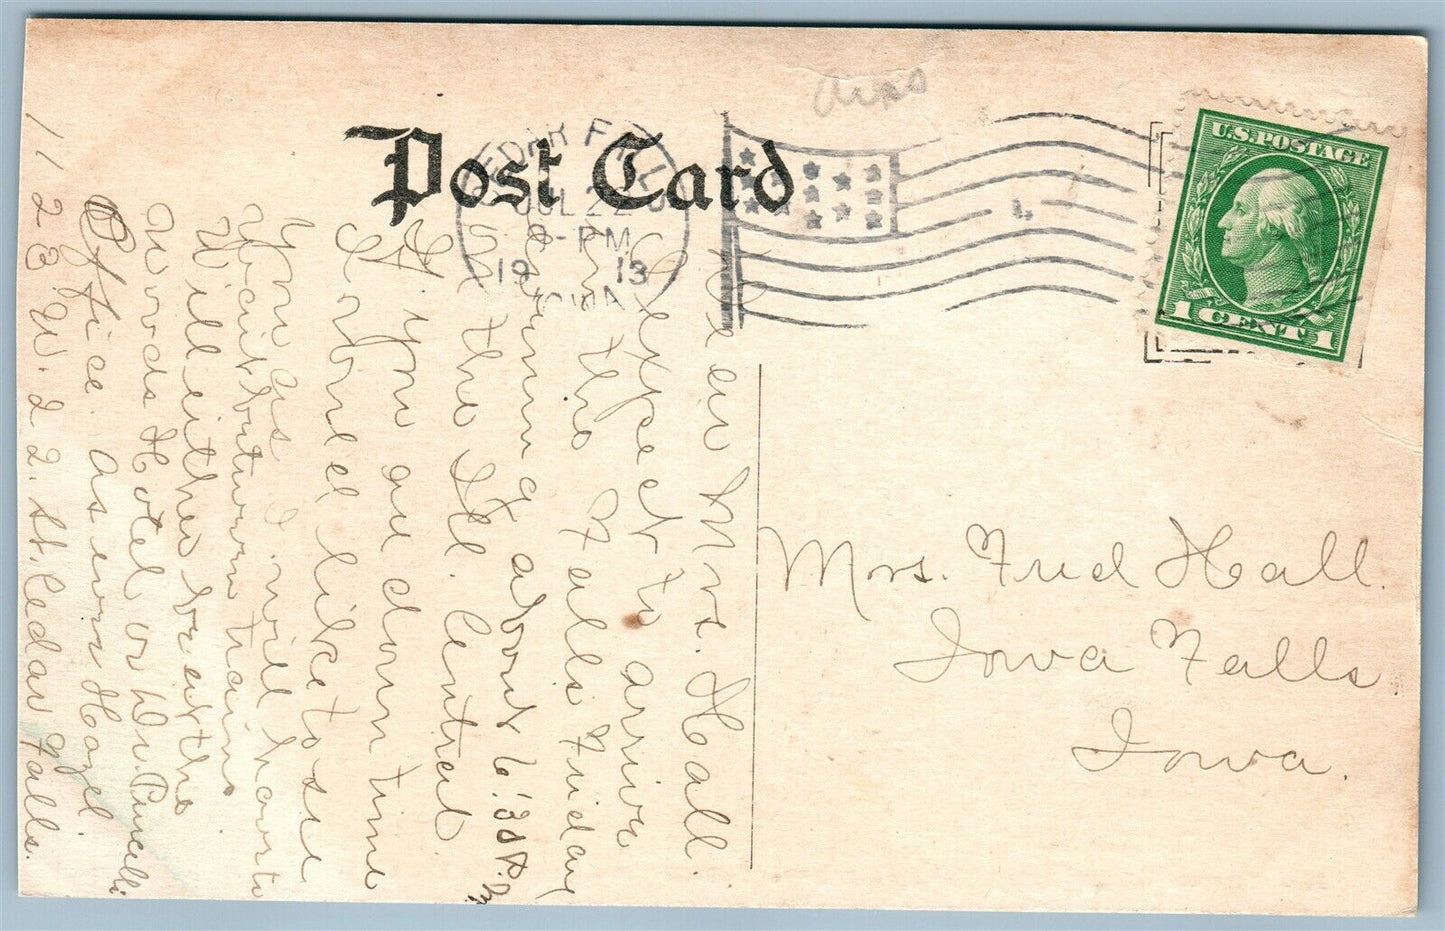 Post Card
CEDAR FALLS
JUL 22
8-PM
1913
IOWA
U.S. POSTAGE
1 CENT 1
Dear Mrs. Hall.
I expect to arrive
in the Falls Friday
evening about 6:30 P.M.
on the Ill. Central
If you are down time
I would like to see
you as I will have to
wait between trains
Will either be at the
Woods Hotel or Dr.
Office. As ever Hazel.
1123 W. 22. St. Cedar Falls.
Mrs. Fred Hall.
Iowa Falls
Iowa.